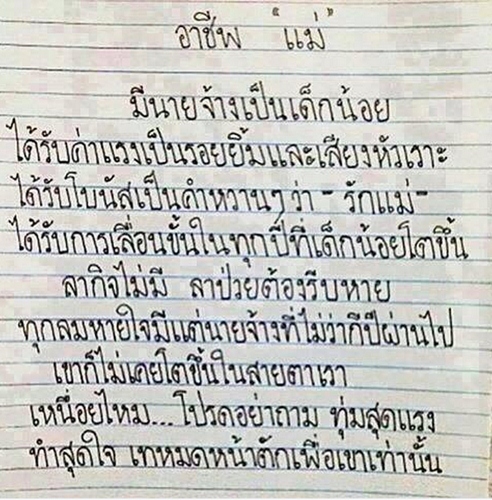 อาชีพ "แม่"
มีนายจ้างเป็นเด็กน้อย
ได้รับค่าแรงเป็นรอยยิ้มและเสียงหัวเราะ
ได้รับโบนัสเป็นคำหวานๆ ว่า - รักแม่ -
ได้รับการเลื่อนขั้นในทุกปีที่เด็กน้อยโตขึ้น
ลากิจไม่มี ลาป่วยต้องรีบหาย
ทุกลมหายใจมีแต่นายจ้างที่ไม่ว่ากี่ปีผ่านไป
เขาก็ไม่เคยโตขึ้นในสายตาเรา
เหนื่อยไหม... โปรดอย่าถาม ทุ่มสุดแรง
ทำสุดใจ เทหมดหน้าตักเพื่อเขาเท่านั้น